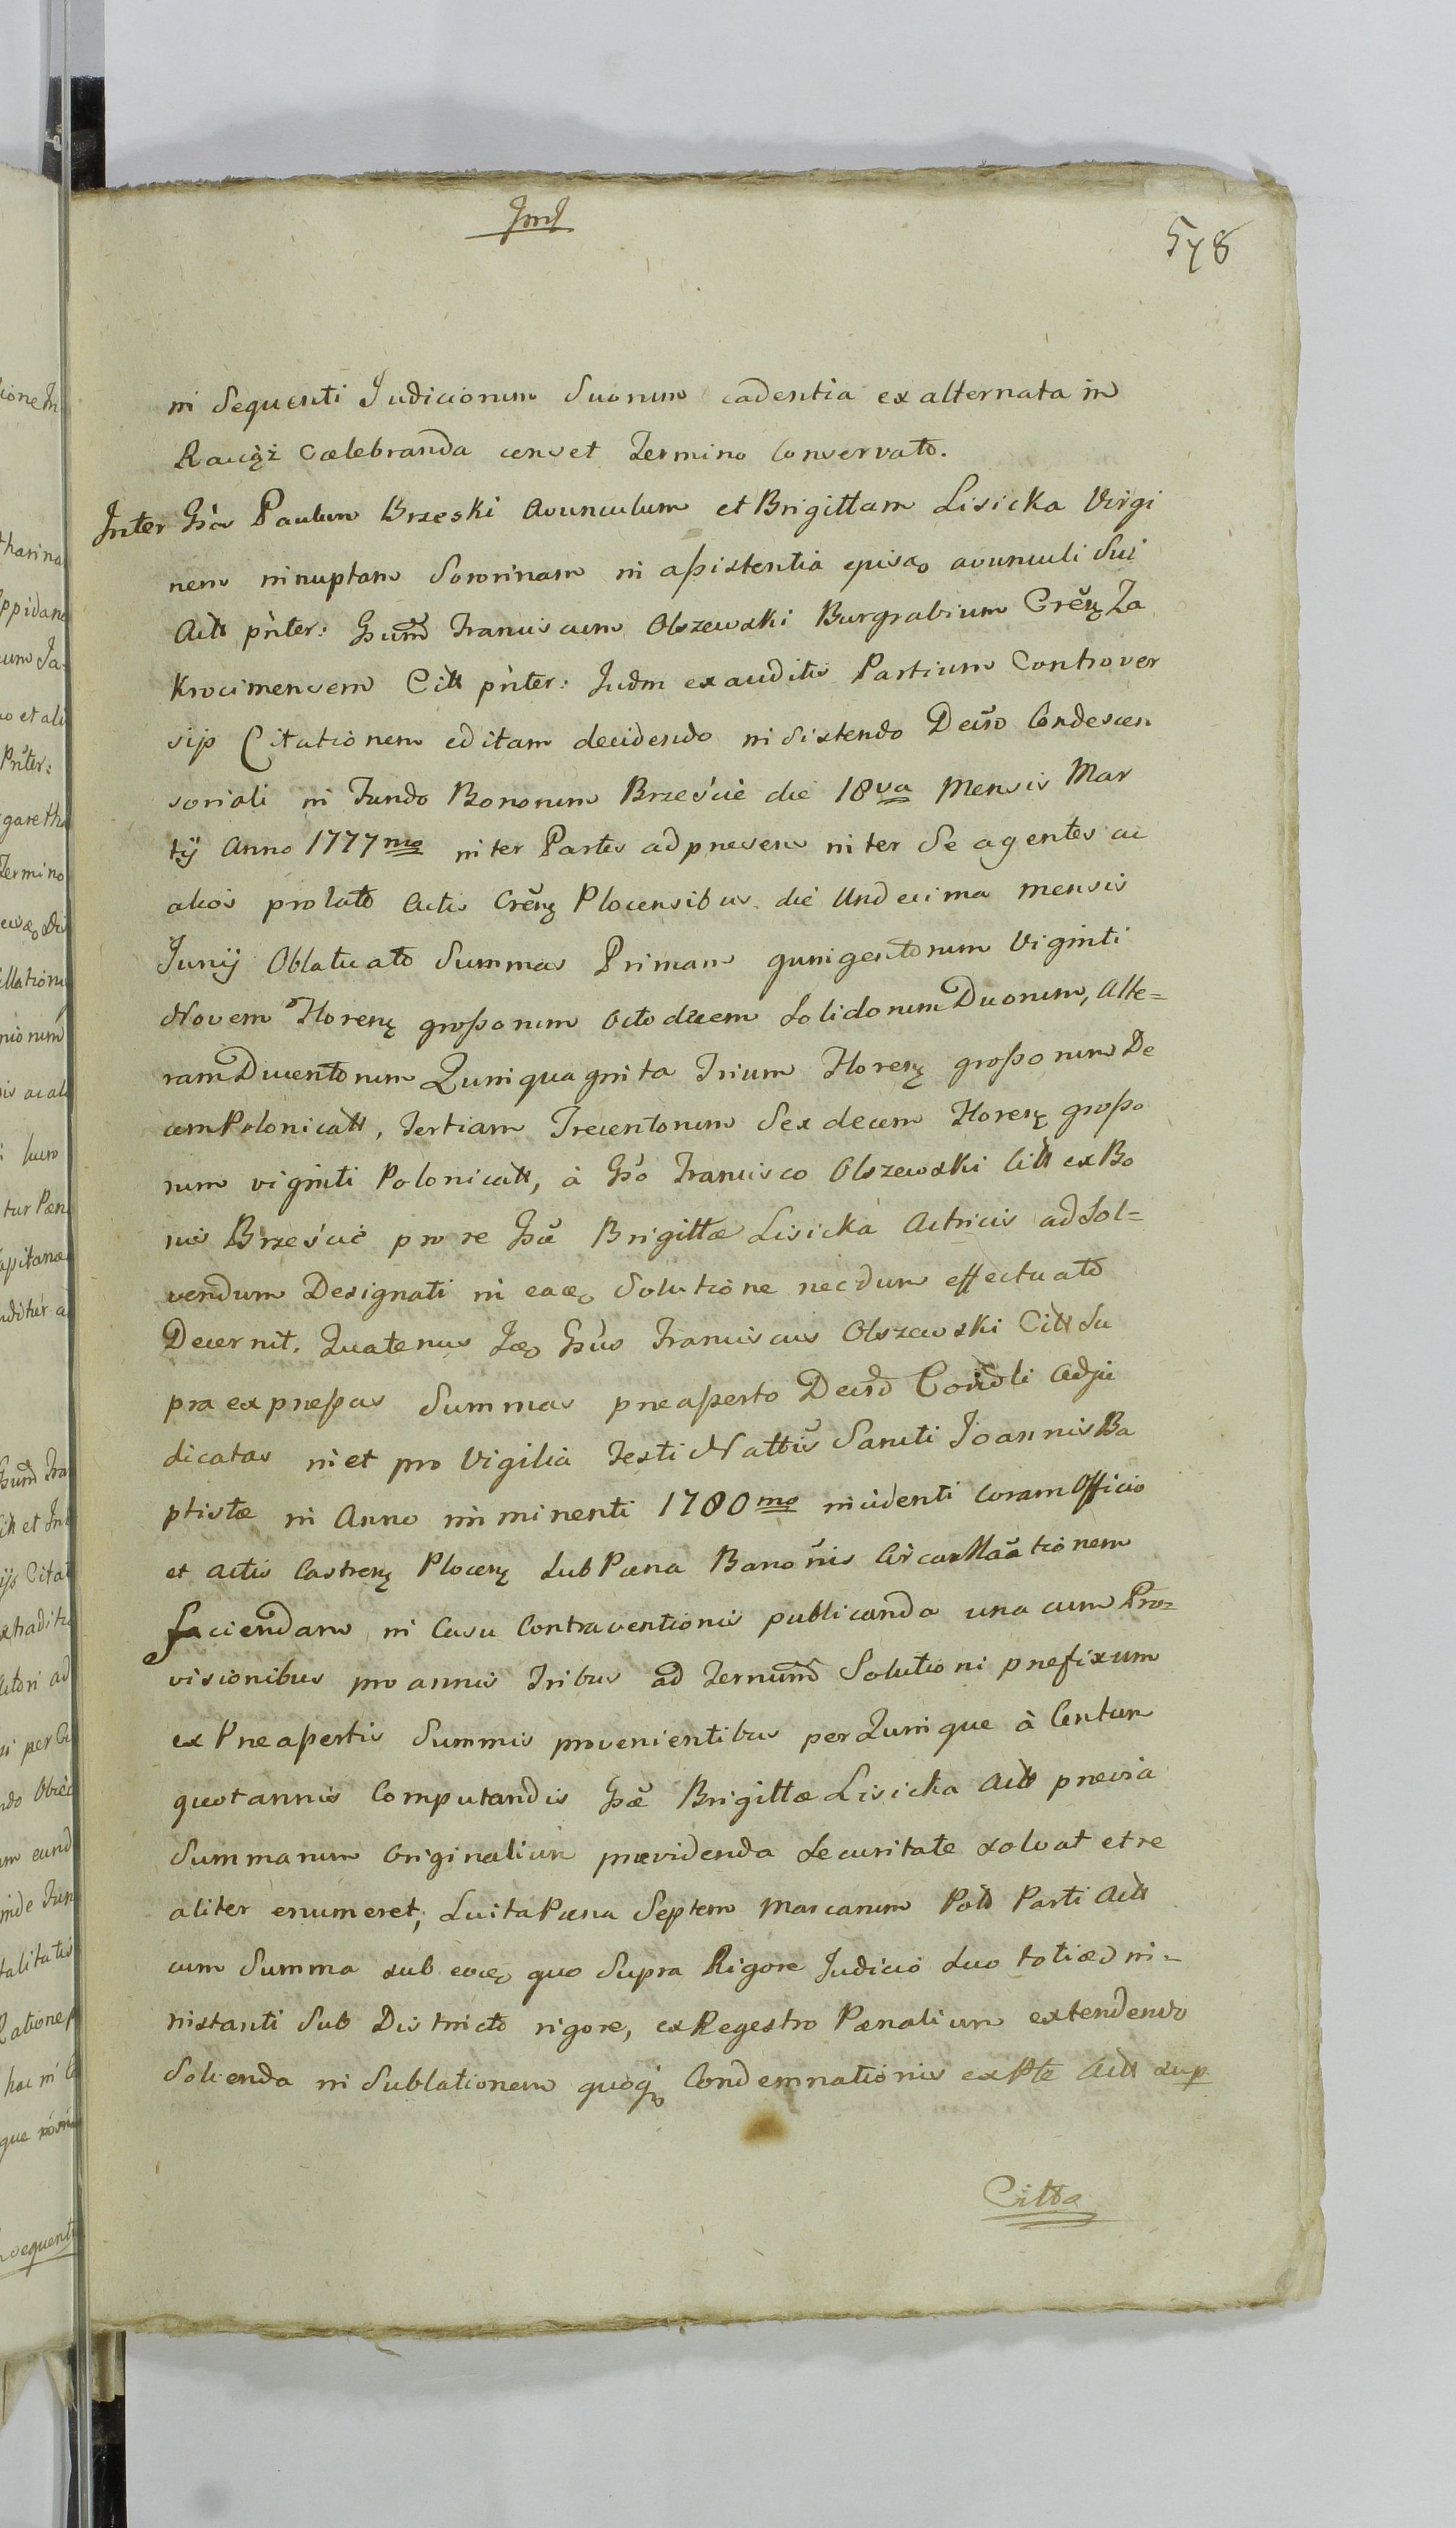 578
in Sequenti Judiciorum Suorum cadentia ex alternata in
Raciąż Cœlebranda censet Termino Conservato.
Inter Gsos Paulum Brzeski Avunculum et Brigittam Lisicka Virgi
nem innuptam Sororinam in assistentia ejusdo avunculi Sui
Actt pnter: Gsum Franciscum Olszewski Burgrabium Cren Za
Krocimensem Citt pnter: Judm ex auditis Partium Controver
sijs Citationem editam decidendo insistendo Decro Condescen
soriali in Fundo Bonorum Brzeście die 18va Mensis Mar
tij Anno 1777mo inter Partes ad præsens inter Se agentes ac
alios prolato Actis Cren Plocensibus die Undecima mensis
Junij Oblatuato Summas Primam quingentorum Viginti
Novem Floren grossorum Octodecem Solidorum Duorum, Alte=
ram Ducentorum Quinquaginta Trium Floren grossorum De
cem Polonicatt, Tertiam Trecentorum Sex decem Floren grosso
rum viginti Polonicatt, à Gso Francisco Olszewski Citt ex Bo
nis Brzeście pro re Gsæ Brigittæ Lisicka Actricis ad Sol=
vendum Designati in eado Solutione necdum effectuato
Decernit. Quatenus Ido Gsus Franciscus Olszewski Citt Su
pra expressas Summas præasserto Decro Condli Adju
dicatas in et pro Vigilia Festi Nattis Sancti Joannis Ba
ptistæ in Anno imminenti 1780mo incidenti coram Officio
et Actis Castren Plocen Sub Pœna Banonis
faciendam in Casu Contraventionis publicanda una cum Pro=
visionibus pro annis Tribus ad Ternum Solutioni præfixum
ex Præassertis Summis provenientibus per Quinque à Centum
quotannis Computandis Gsæ Brigittæ Lisicka Actt prævia
Summarum Originalium prævidenda Securitate solvat et re
aliter enumeret; Luita Pœna Septem Marcarum Poło Parti Actt
cum Summa sub eado quo Supra Rigore Judicio Suo totied in=
nistanti Sub Districto rigore, ex Regestro Pœnalium extendendo
Solvenda in Sublationem quoqo Condemnationis ex Pte Actt sup
Citta